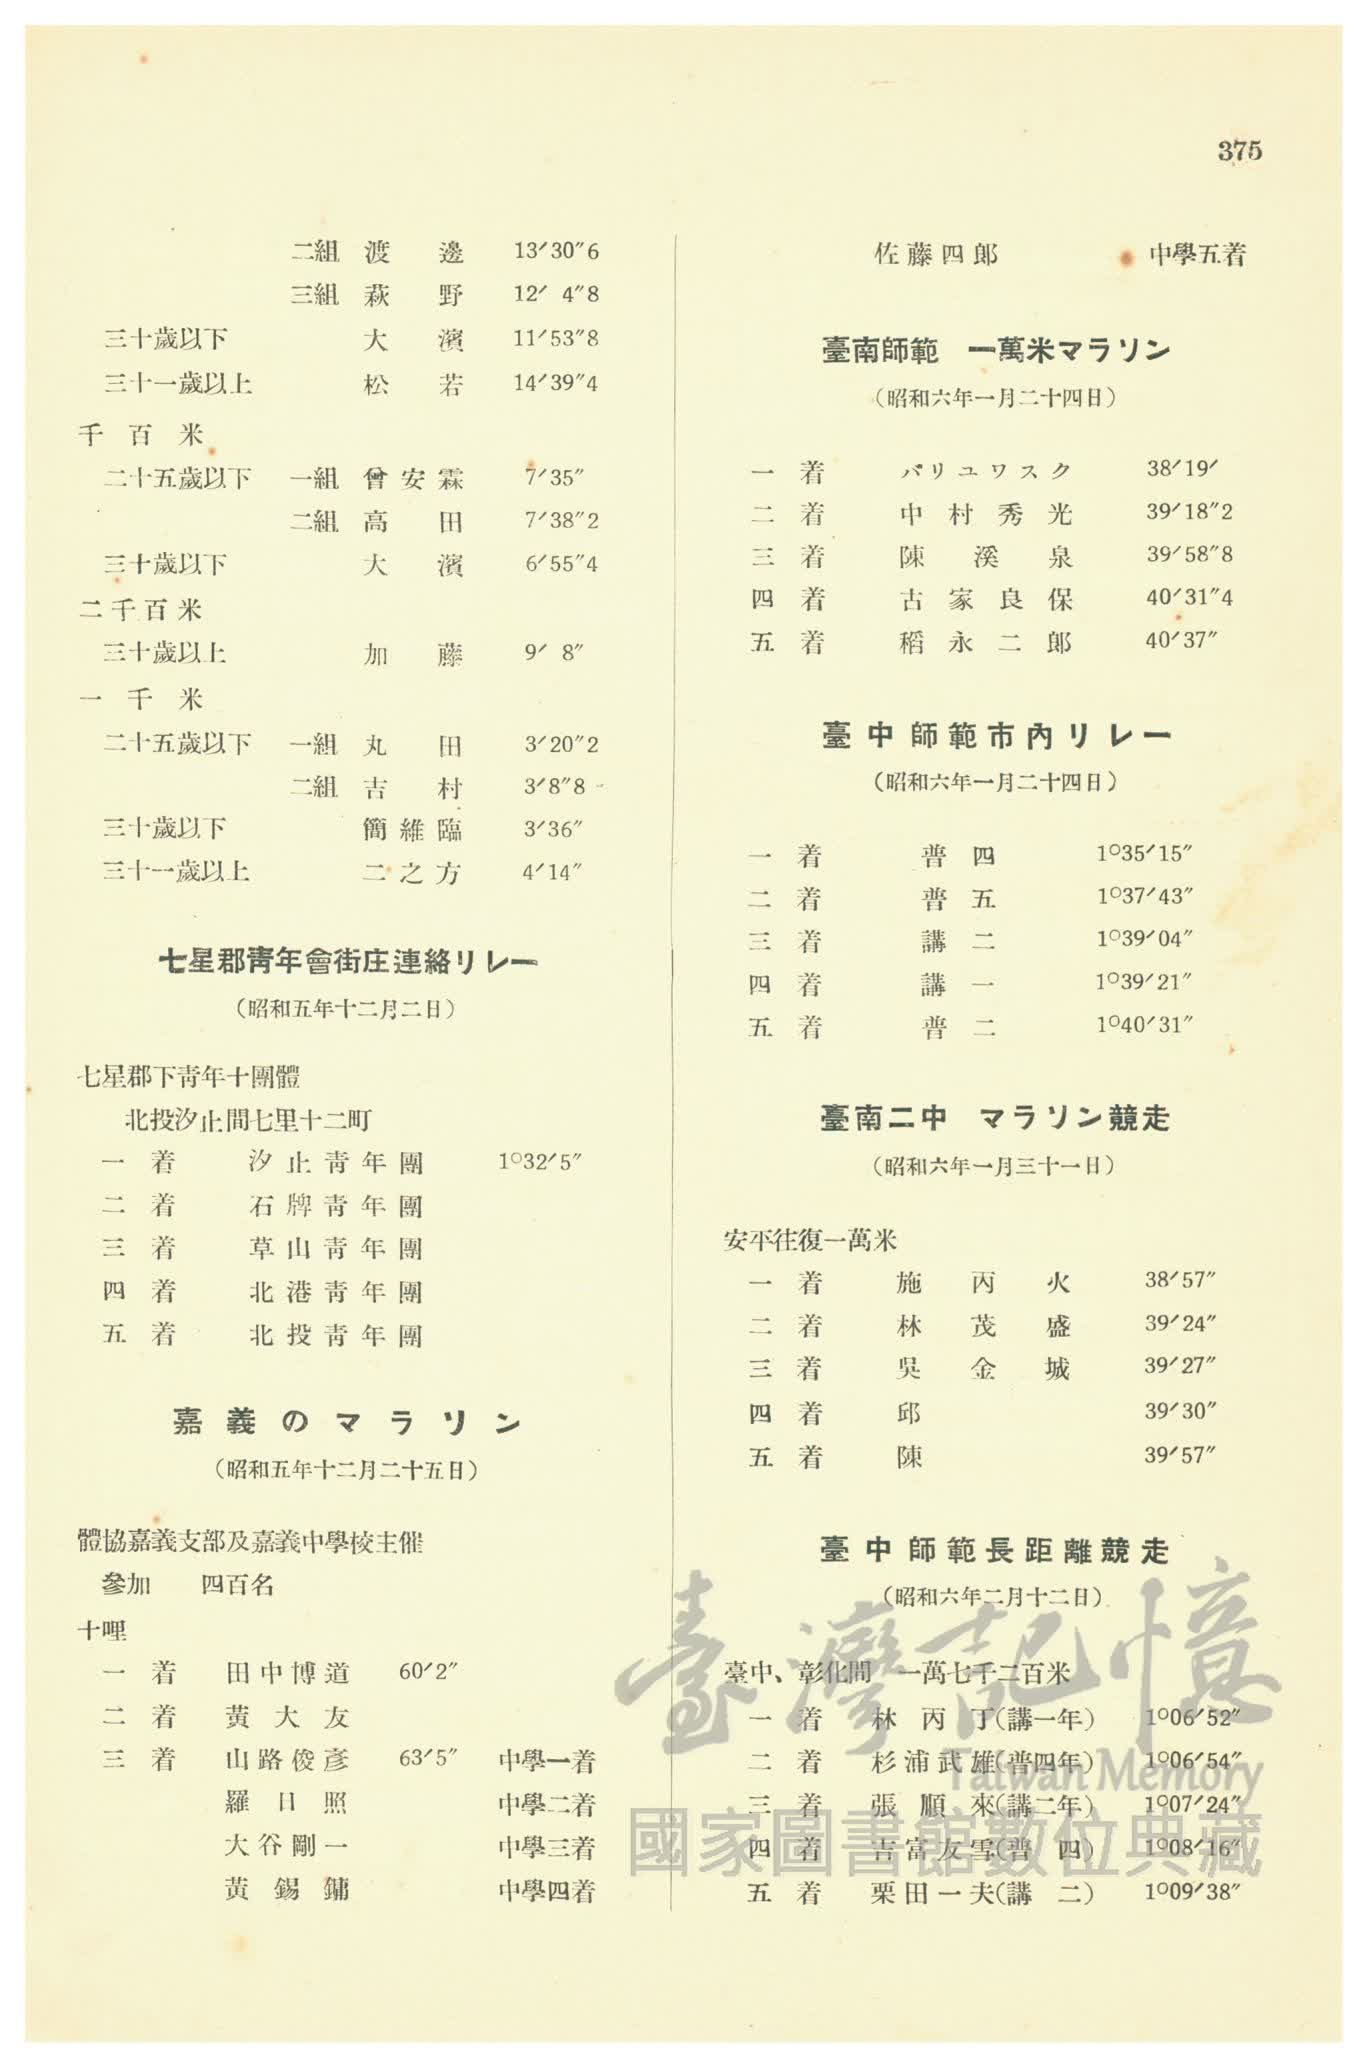 375
二組 渡邊 13′30″6
三組 萩野 12′ 4″8
三十歲以下 大濱 11′53″8
三十一歲以上 松若 14′39″4
千百米
二十五歲以下 一組 曾安霖 7′35″
二組 高田 7′38″2
三十歲以下 大濱 6′55″4
二千百米
三十歲以上 加藤 9′ 8″
一千米
二十五歲以下 一組 丸田 3′20″2
二組 吉村 3′8″8
三十歲以下 簡維臨 3′36″
三十一歲以上 二之方 4′14″
七星郡靑年會街庄連絡リレー
（昭和五年十二月二日）
七星郡下靑年十團體
北投汐止間七里十二町
一着 汐止靑年團 1°32′5″
二着 石牌靑年團
三着 草山靑年團
四着 北港靑年團
五着 北投靑年團
嘉義のマラソン
（昭和五年十二月二十五日）
體協嘉義支部及嘉義中學校主催
參加 四百名
十哩
一着 田中博道 60′2″
二着 黃大友
三着 山路俊彥 63′5″ 中學一着
羅日照 中學二着
大谷剛一 中學三着
黃錫鏞 中學四着
佐藤四郎 中學五着
臺南師範 一萬米マラソン
（昭和六年一月二十四日）
一着 バリユワスク 38′19′
二着 中村秀光 39′18″2
三着 陳溪泉 39′58″8
四着 古家良保 40′31″4
五着 稻永二郎 40′37″
臺中師範市內リレー
（昭和六年一月二十四日）
一着 普四 1°35′15″
二着 普五 1°37′43″
三着 講二 1°39′04″
四着 講一 1°39′21″
五着 普二 1°40′31″
臺南二中 マラソン競走
（昭和六年一月三十一日）
安平往復一萬米
一着 施丙火 38′57″
二着 林茂盛 39′24″
三着 吳金城 39′27″
四着 邱 39′30″
五着 陳 39′57″
臺中師範長距離競走
（昭和六年二月十二日）
臺中、彰化間 一萬七千二百米
一着 林丙丁(講一年) 1°06′52″
二着 杉浦武雄(普四年) 1°06′54″
三着 張順來(講二年) 1°07′24″
四着 吉富友雪(普四) 1°08′16″
五着 栗田一夫(講二) 1°09′38″
臺灣記憶
Taiwan Memory
國家圖書館數位典藏